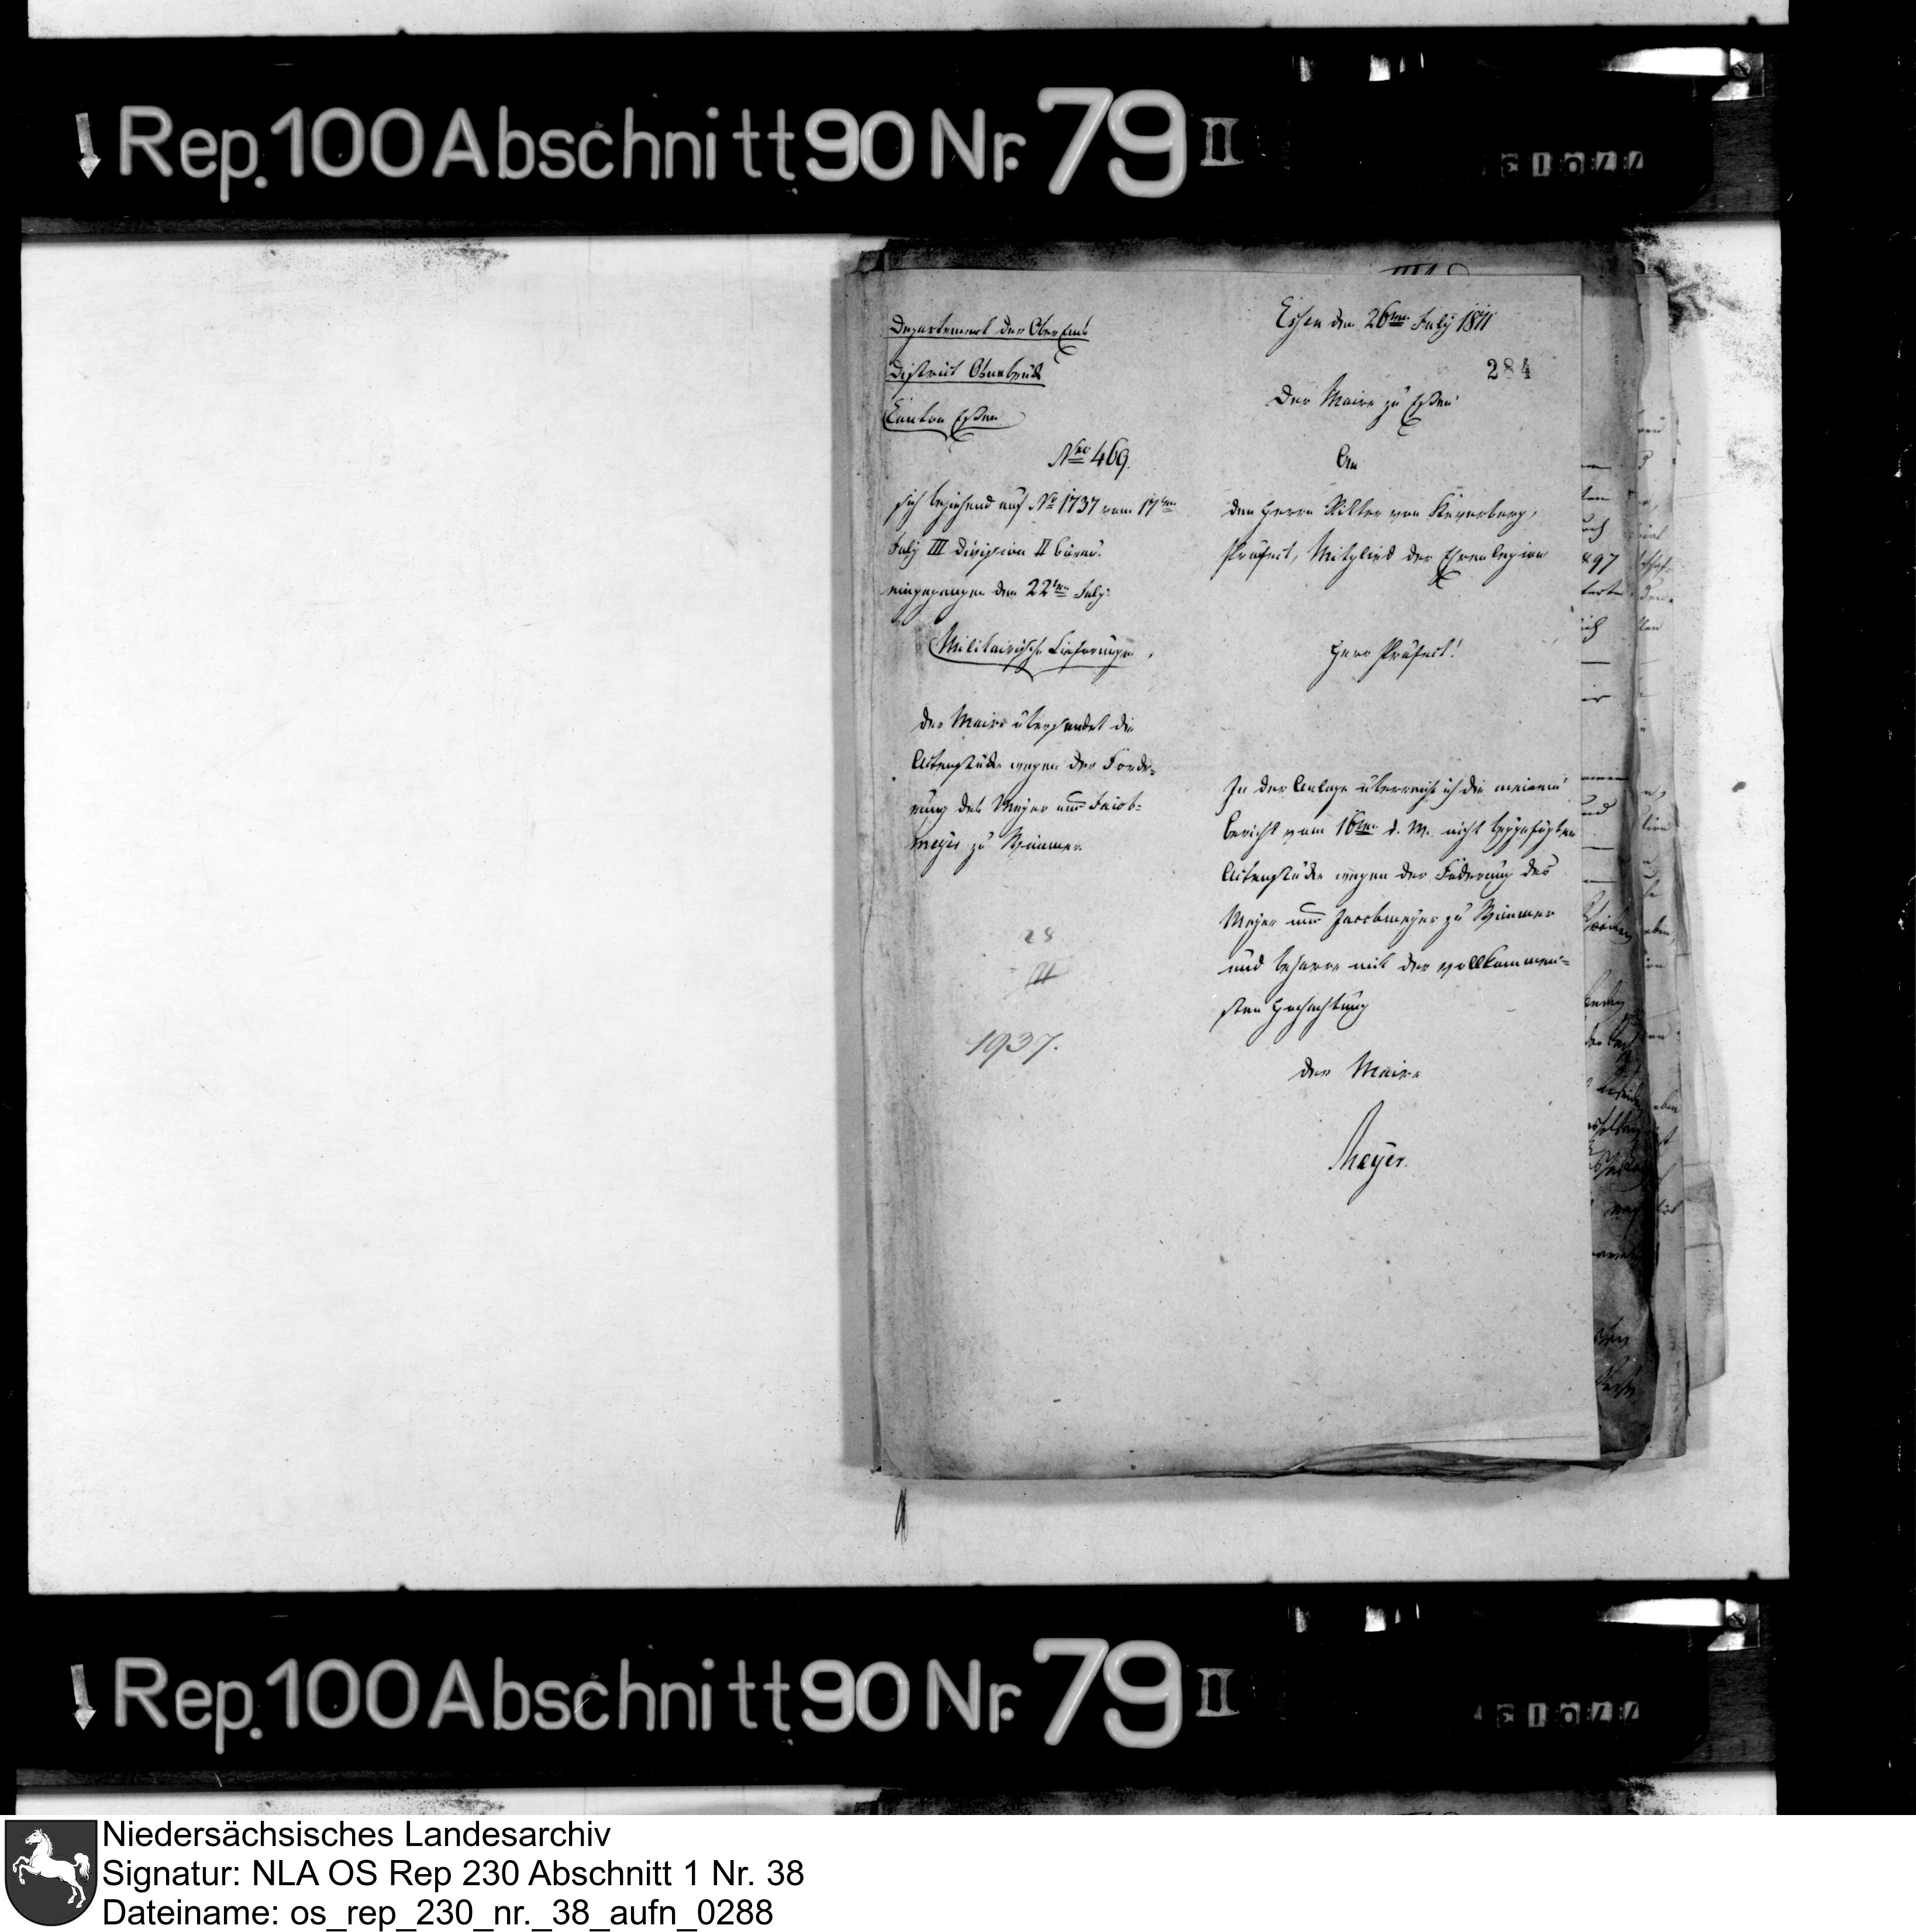 Rep. 100 Abschnitt 90 Nr. 79 II
Departement der Ober Ems
District Osnabrück
Canton Essen
Nro 469.
sich beziehend auf No 1737 vom 17ten
July III Division II Büreau.
eingegangen den 22ten July.
Militairische Lieferungen.
der Maire übersendet die
Actenstücke wegen der Forde=
rung des Meyer und Jacob=
meyer zu Wimmer
28
III
1937.
Essen den 26ten July 1811
284
Der Maire zu Essen
An
den Herrn Ritter von Keverberg,
Präfect, Mitglied der Ehrenlegion
Herr Präfect!
In der Anlage überreiche ich die meinem
Bericht vom 16ten d. M. nicht beygefügten
Actenstücke wegen der Foderung des
Meyer und Jacobmeyer zu Wimmer
und beharre mit der vollkommen=
sten Hochachtung
der Maire
Meyer.
Rep. 100 Abschnitt 90 Nr. 79 II
Niedersächsisches Landesarchiv
Signatur: NLA OS Rep 230 Abschnitt 1 Nr. 38
Dateiname: os_rep_230_nr._38_aufn_0288